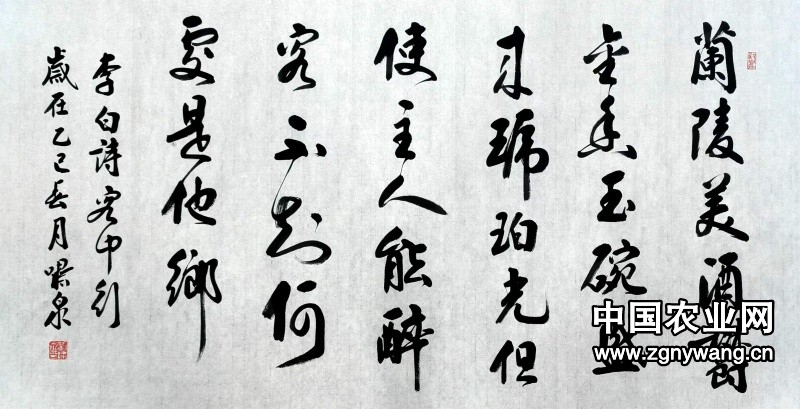 蘭陵美酒鬱
金香玉碗盛
来琥珀光但
使主人能醉
客不知何
處是他鄉
李白詩客中行
歲在乙巳春月泉
中国农业网
www.zgnywang.cn